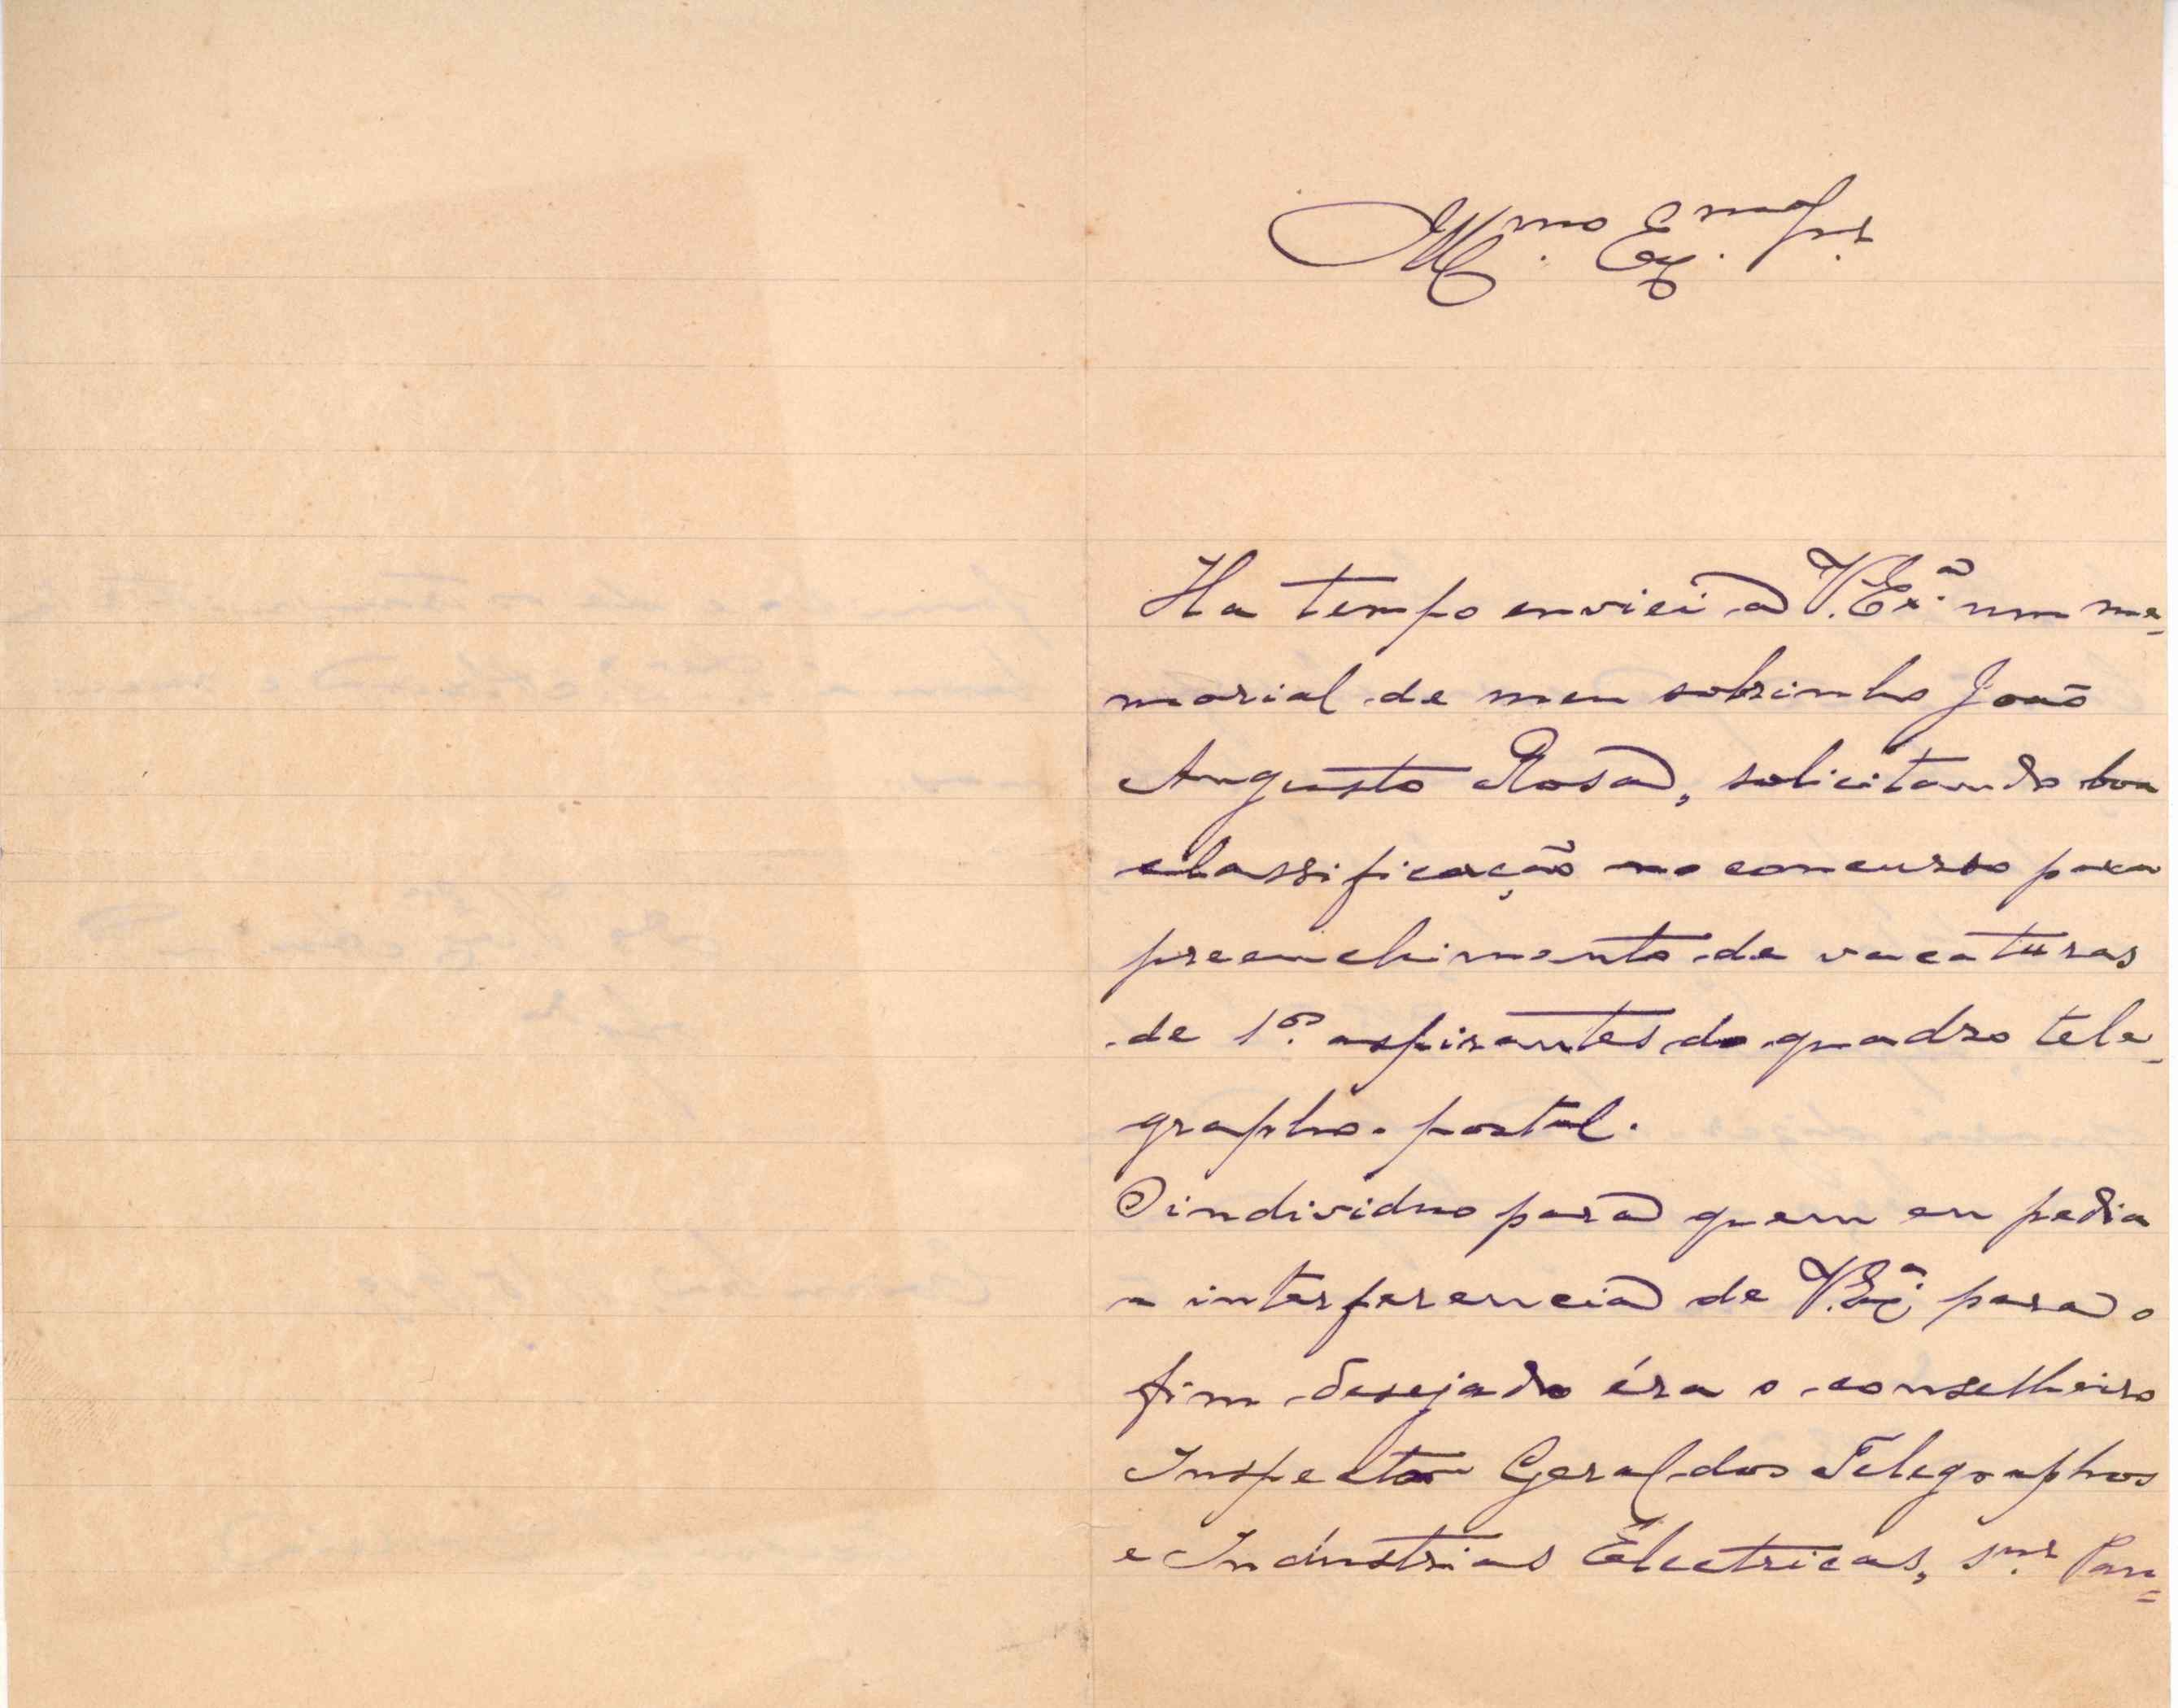 Ill.mo Ex.mo Snr.
Ha tempo enviei a V. Ex.ª um me-
morial de meu sobrinho João
Augusto Rosa, solicitando boa
classificação no concurso para
preenchimento de vacaturas
de 1.os aspirantes do quadro tele-
grapho-postal.
O individuo para quem eu pedia
a interferencia de V. Ex.ª para o
fim desejado éra o conselheiro
Inspector Geral dos Telegraphos
e Indústrias Electricas, snr. Pau=